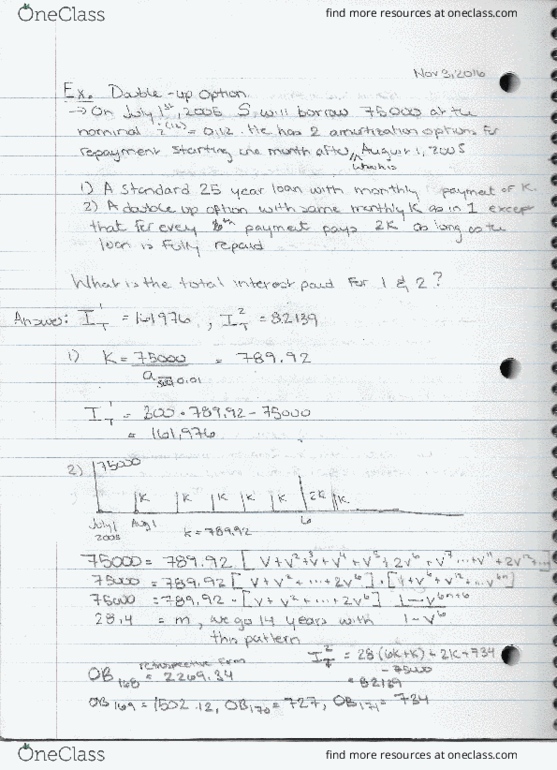 OneClass
find more resources at oneclass.com
Nov 3, 2016
Ex. Double-up option
→ On July 1st, 2005 S. will borrow 75000 at the
nominal i^(12) = 0.12. He has 2 amortization options for
repayment starting one month after, August 1, 2005
which is
1) A standard 25 year loan with monthly payment of K.
2) A double up option with same monthly K as in 1 except
that for every 6th payment pays 2K as long as the
loan is fully repaid
What is the total interest paid for 1 & 2?
Answer: I_T^1 = 161976, I_T^2 = 82139
1) K = 75000 = 789.92
a 300 0.01
I_T^1 = 300 · 789.92 - 75000
= 161,976
2) 75000
K K K K K 2K K
July 1 Aug 1 6
2005 K = 789.92
75000 = 789.92 [V + V² + V³ + V⁴ + V⁵ + 2V⁶ + V⁷ ... + V¹¹ + 2V¹² + ...]
75000 = 789.92 [V + V² + ... + 2V⁶] · [1 + V⁶ + V¹² + ... V⁶ⁿ]
75000 = 789.92 · [V + V² + ... + 2V⁶] 1 - V⁶ⁿ⁺⁶
28.4 = m, we go 14 years with 1 - V⁶
this pattern
I_T^2 = 28(6K+K) + 2K + 734
retrospective form - 75000
OB168 = 2269.34 = 82139
OB169 = 1502.12, OB170 = 727, OB171 = 734
OneClass
find more resources at oneclass.com